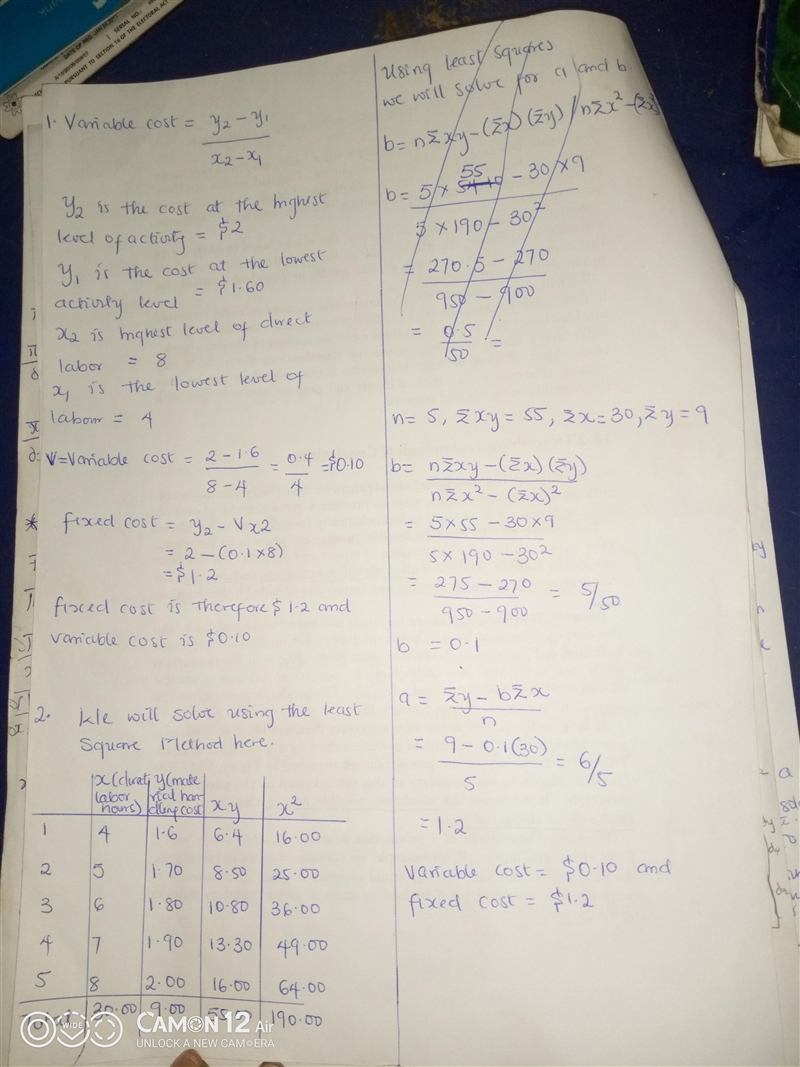 1. Variable cost = y2 - y1
x2 - x1
y2 is the cost at the highest
level of activity = $2
y1 is the cost at the lowest
activity level = $1.60
x2 is highest level of direct
labor = 8
x1 is the lowest level of
labour = 4
V = Variable cost = 2 - 1.6 / 8 - 4 = 0.4 / 4 = $0.10
* fixed cost = y2 - Vx2
= 2 - (0.1 x 8)
= $1.2
fixed cost is therefore $1.2 and
variable cost is $0.10
2. We will solve using the least
Square Method here.
x (direct labor hours) y (material handling cost xy x²
1 4 1.6 6.4 16.00
2 5 1.70 8.50 25.00
3 6 1.80 10.80 36.00
4 7 1.90 13.30 49.00
5 8 2.00 16.00 64.00
Total 30.00 9.00 190.00
Using least squares
we will solve for a and b.
b = nΣxy - (Σx)(Σy) / nΣx² - (Σx)
b = 5 x 55 - 30 x 9
5 x 190 - 30²
= 270.5 - 270
950 - 900
= 0.5 / 50 =
n = 5, Σxy = 55, Σx = 30, Σy = 9
b = nΣxy - (Σx)(Σy)
nΣx² - (Σx)²
= 5 x 55 - 30 x 9
5 x 190 - 30²
= 275 - 270 / 950 - 900 = 5/50
b = 0.1
a = Σy - bΣx
n
= 9 - 0.1(30) / 5 = 6/5
= 1.2
Variable cost = $0.10 and
fixed cost = $1.2
WIDE
CAMON 12 Air
UNLOCK A NEW CAMERA